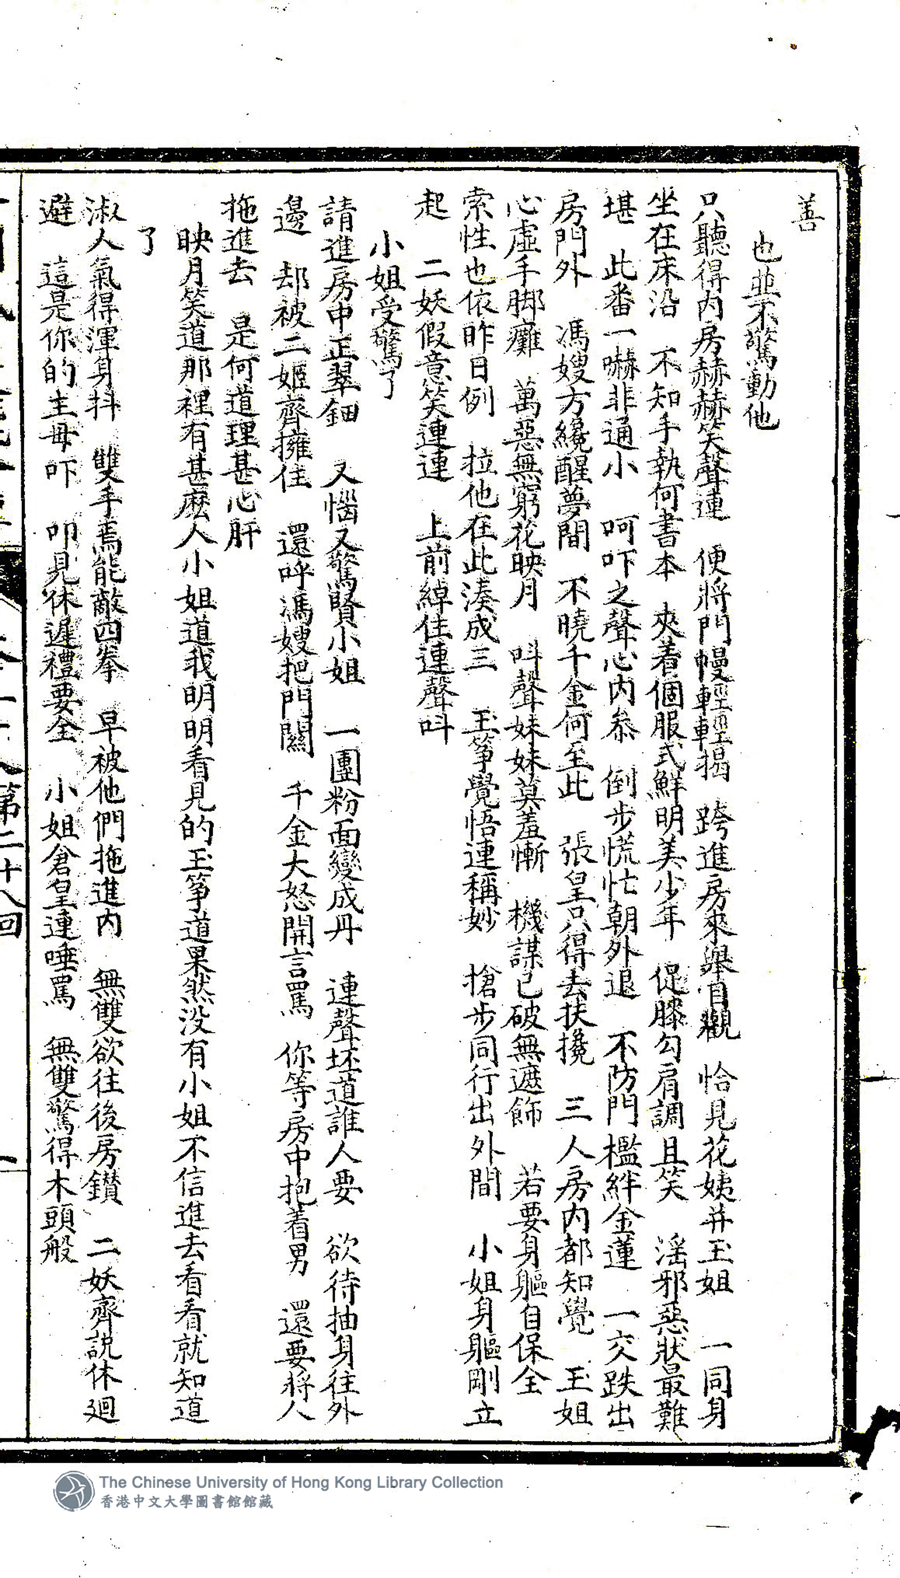 善
也並不驚動他
只聽得內房赫赫笑聲連　便將門幔輕輕揭　跨進房來舉目觀　恰見花姨并玉姐　一同身
坐在床沿　不知手執何書本　夾着個服式鮮明美少年　促膝勾肩調且笑　淫邪惡狀最難
堪　此番一嚇非通小　呵吓之聲心內叅　倒步慌忙朝外退　不防門檻絆金蓮　一交跌出
房門外　馮嫂方纔醒夢間　不曉千金何至此　張皇只得去扶攙　三人房內都知覺　玉姐
心虛手脚癱　萬惡無窮花映月　呌聲妹妹莫羞慚　機謀已破無遮飾　若要身軀自保全
索性也依昨日例　拉他在此湊成三　玉箏覺悟連稱妙　搶步同行出外間　小姐身軀剛立
起　二妖假意笑連連　上前綽住連聲呌
小姐受驚了
請進房中正翠鈿　又惱又驚賢小姐　一團粉面變成丹　連聲坯道誰人要　欲待抽身往外
邊　却被二姬齊擁住　還呼馮嫂把門關　千金大怒開言罵　你等房中抱着男　還要將人
拖進去　是何道理甚心肝
映月笑道那裡有甚麽人小姐道我明明看見的玉箏道果然没有小姐不信進去看看就知道
了
淑人氣得渾身抖　雙手焉能敵四拳　早被他們拖進內　無雙欲往後房鑚　二妖齊說休迴
避　這是你的主母吓　叩見休遲禮要全　小姐倉皇連唾罵　無雙驚得木頭般
第二十八回
The Chinese University of Hong Kong Library Collection
香港中文大學圖書館館藏